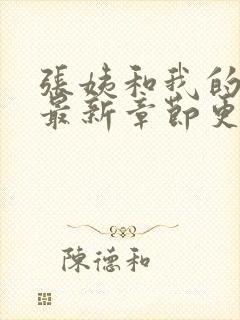 張姨和我的
最新章節更
陳德和